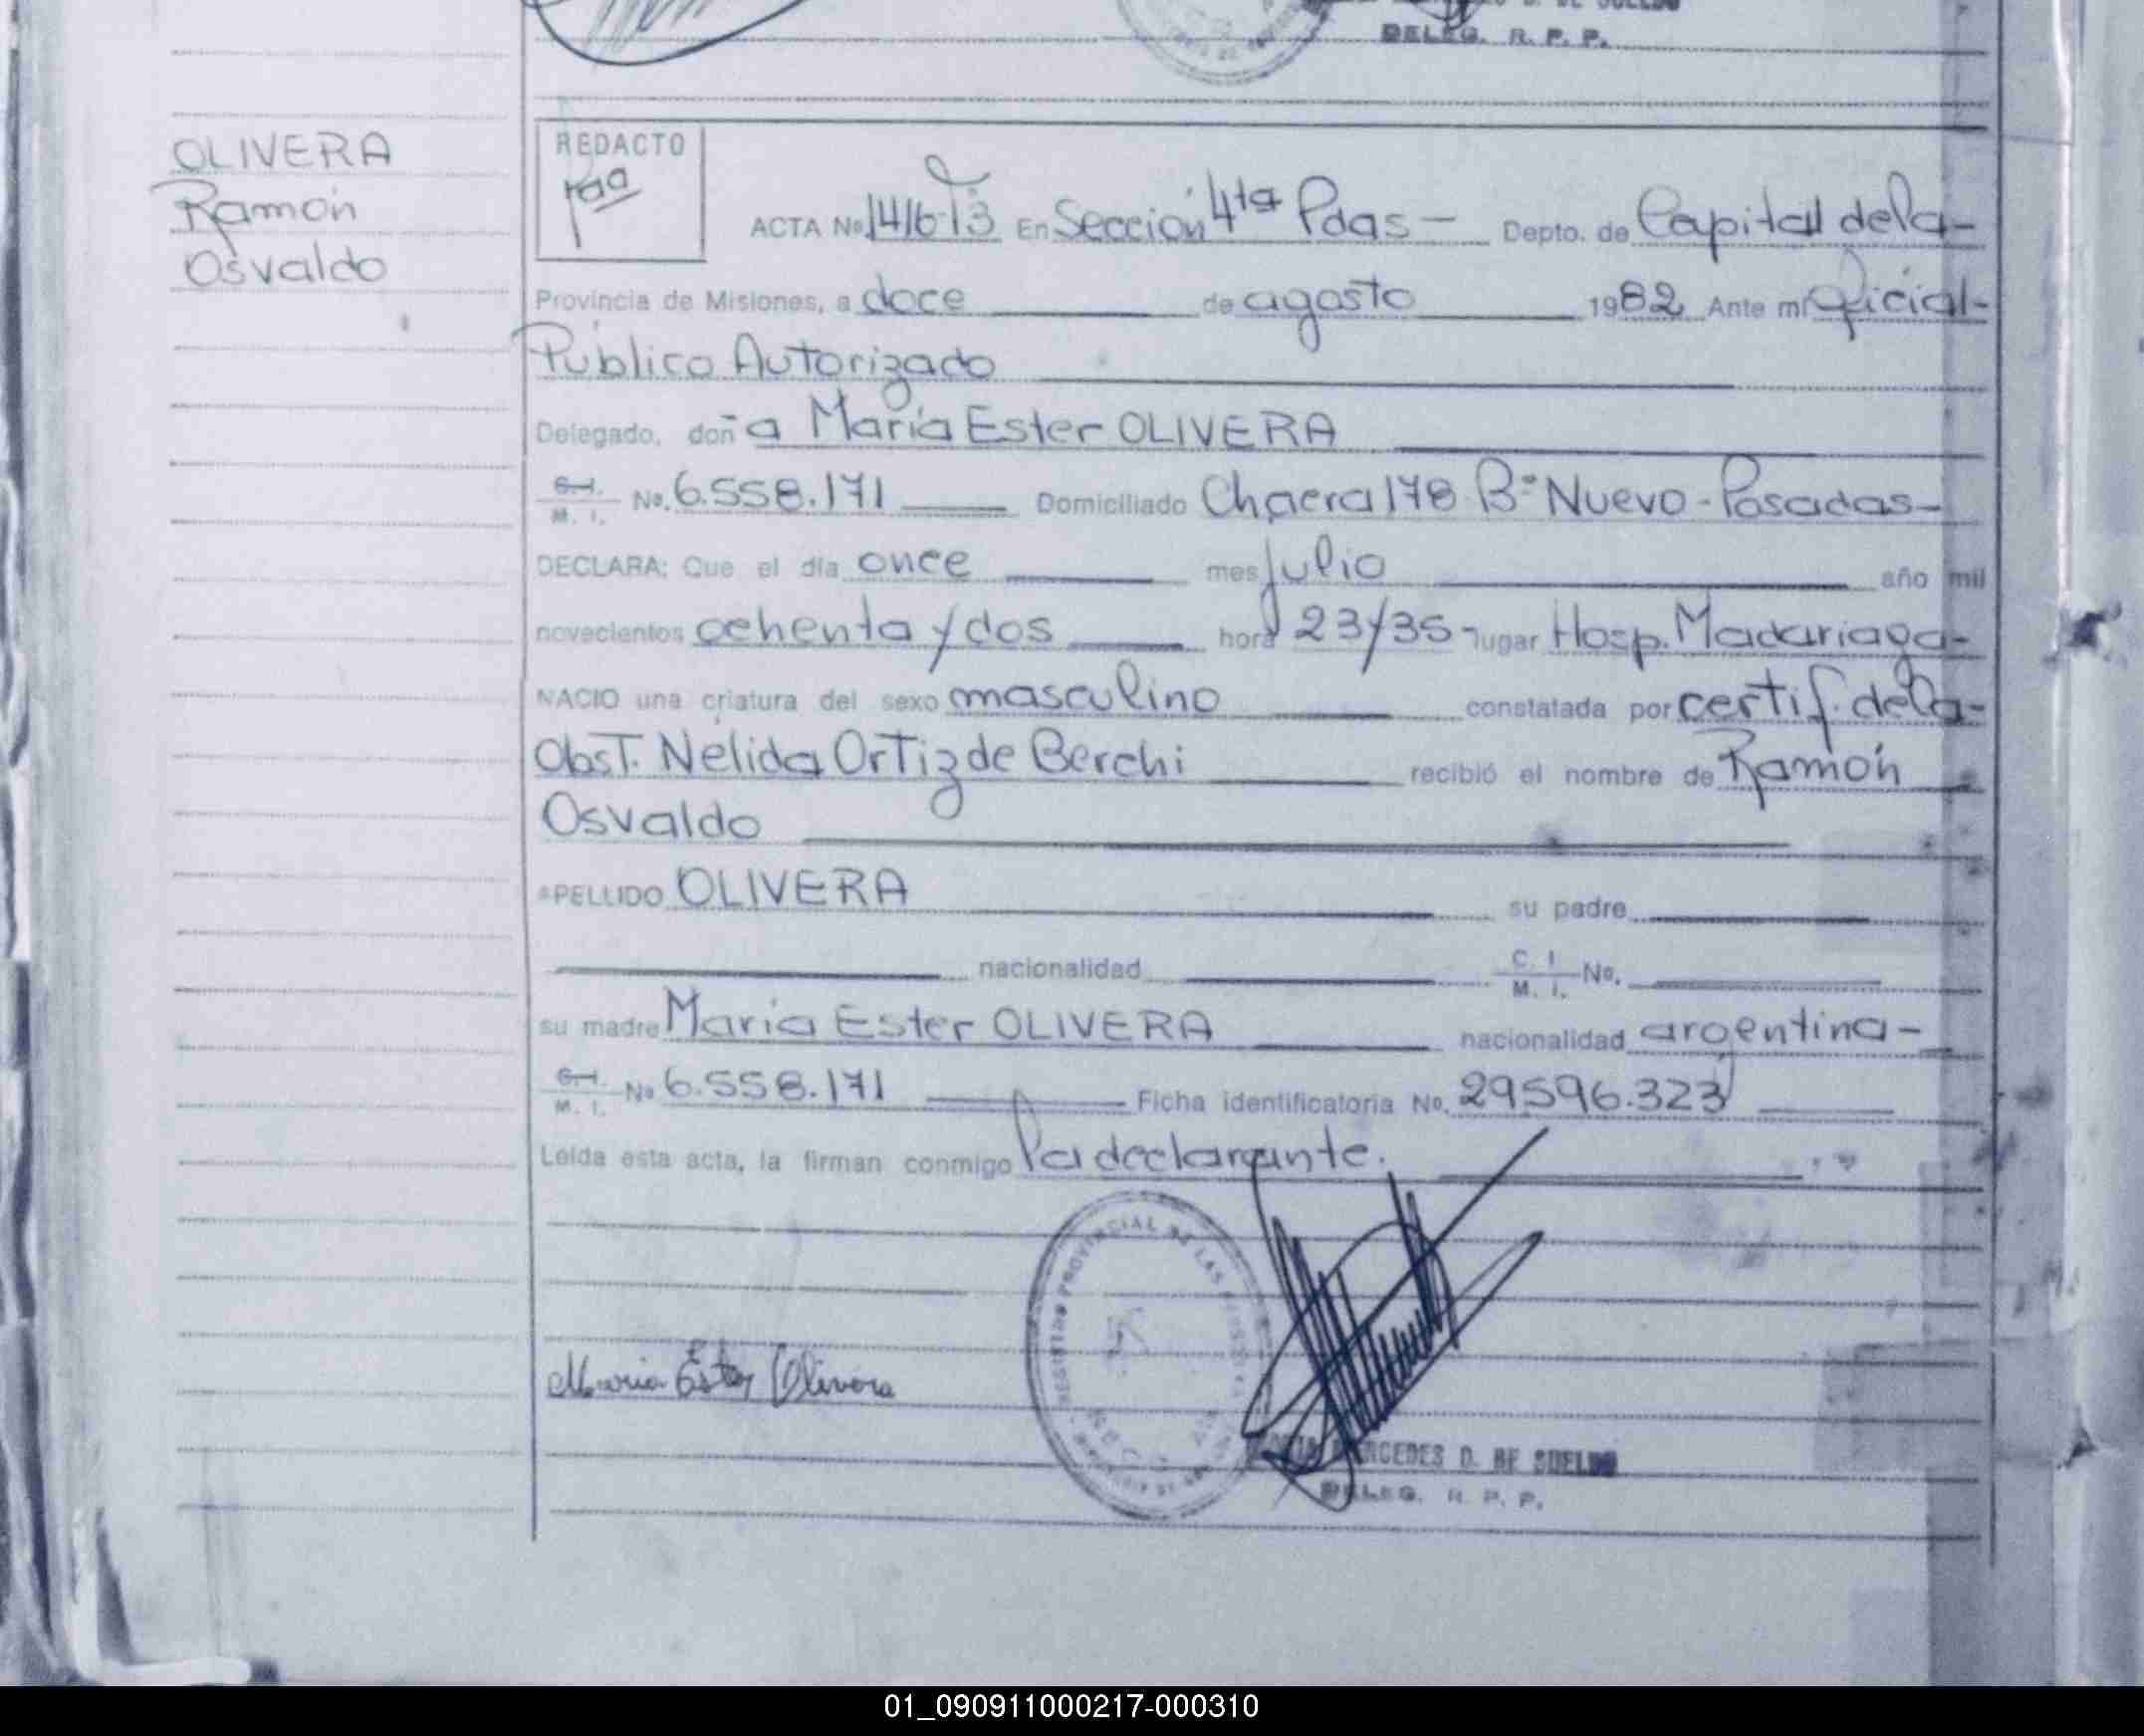 DELEG. R. P. P.
OLIVERA
Ramón
Osvaldo
REDACTO
ACTA No En Sección 4ta Pdas - Depto. de Capital de la-
Provincia de Misiones, a doce de agosto 1982 Ante mí Oficial-
Público Autorizado
Delegado, doña María Ester OLIVERA
C.I. M. I. No. 6.558.171 Domiciliado Chacra 178 Bº Nuevo - Posadas-
DECLARA: Que el día once mes julio año mil
novecientos ochenta y dos hora 23/35- lugar Hosp. Madariaga-
NACIO una criatura del sexo masculino constatada por certif. de la-
Obst. Nelida Ortiz de Berchi recibió el nombre de Ramón
Osvaldo
APELLIDO OLIVERA su padre
nacionalidad C. I. M. I. No.
su madre María Ester OLIVERA nacionalidad argentina-
C.I. M. I. No 6.558.171 Ficha identificatoria No. 29596.323
Leída esta acta, la firman conmigo la declarante.
REGISTRO PROVINCIAL DE LAS PERSONAS
Maria Ester Olivera
MERCEDES D. DE SUELDO
DELEG. R. P. P.
01_090911000217-000310